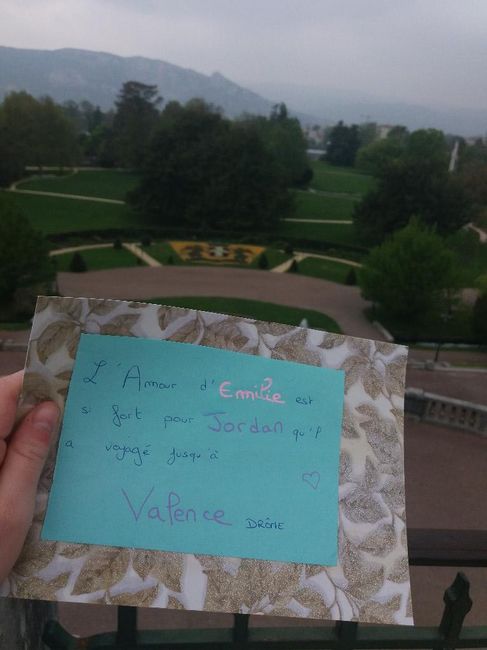 L'Amour d'Emilie est
si fort pour Jordan qu'il
a voyagé jusqu'à
Valence DRÔME